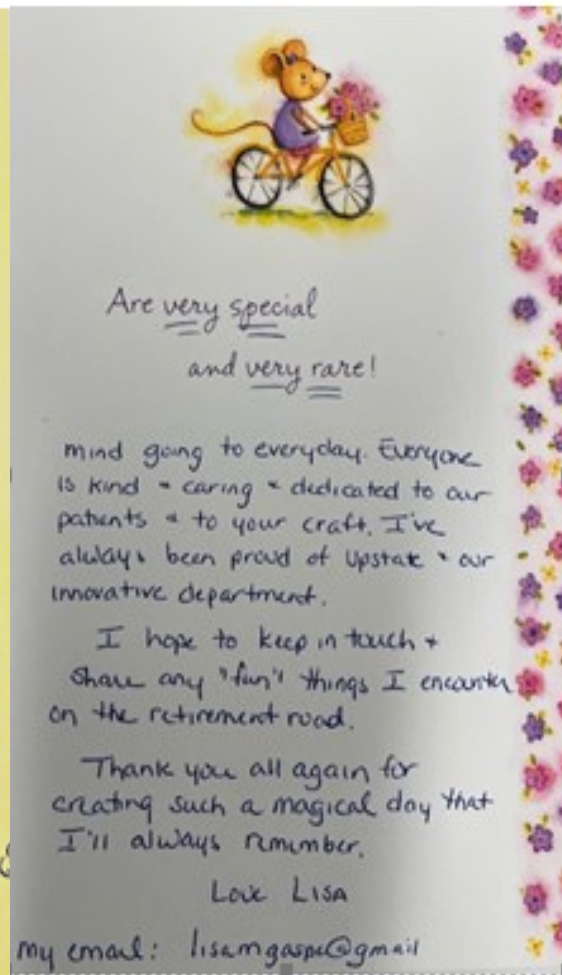 Are very special
and very rare!
mind going to everyday. Everyone
is kind + caring + dedicated to our
patients + to your craft. I've
always been proud of Upstate + our
innovative department.
I hope to keep in touch +
share any "fun" things I encounter
on the retirement road.
Thank you all again for
creating such a magical day that
I'll always remember.
Love Lisa
my email: @gmail